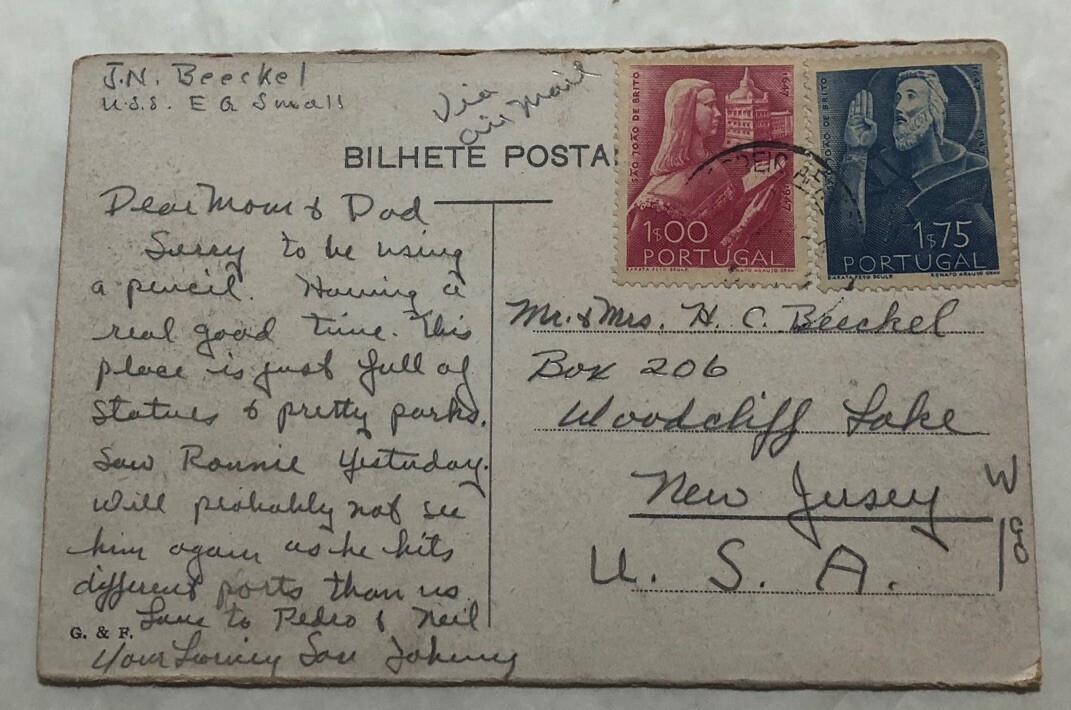 J.N. Beeckel
U.S.S. E G Small
Via
air mail
BILHETE POSTA
SÃO JOÃO DE BRITO
1647
1947
1$00
PORTUGAL
BARATA FEYO SCULP.
RENATO ARAUJO GRAV
SÃO JOÃO DE BRITO
1647
1$75
PORTUGAL
BARATA FEYO SCULP.
RENATO ARAUJO GRAV
Dear Mom & Dad
Sorry to be using
a pencil. Having a
real good time. This
place is just full of
statues & pretty parks.
Saw Ronnie Yesterday.
Will probably not see
him again as he hits
different ports than us
Love to Pedro & Neil
Your Loving Son Johnny
G. & F.
Mr. & Mrs. H. C. Beeckel
Box 206
Woodcliff Lake
New Jersey
U. S. A.